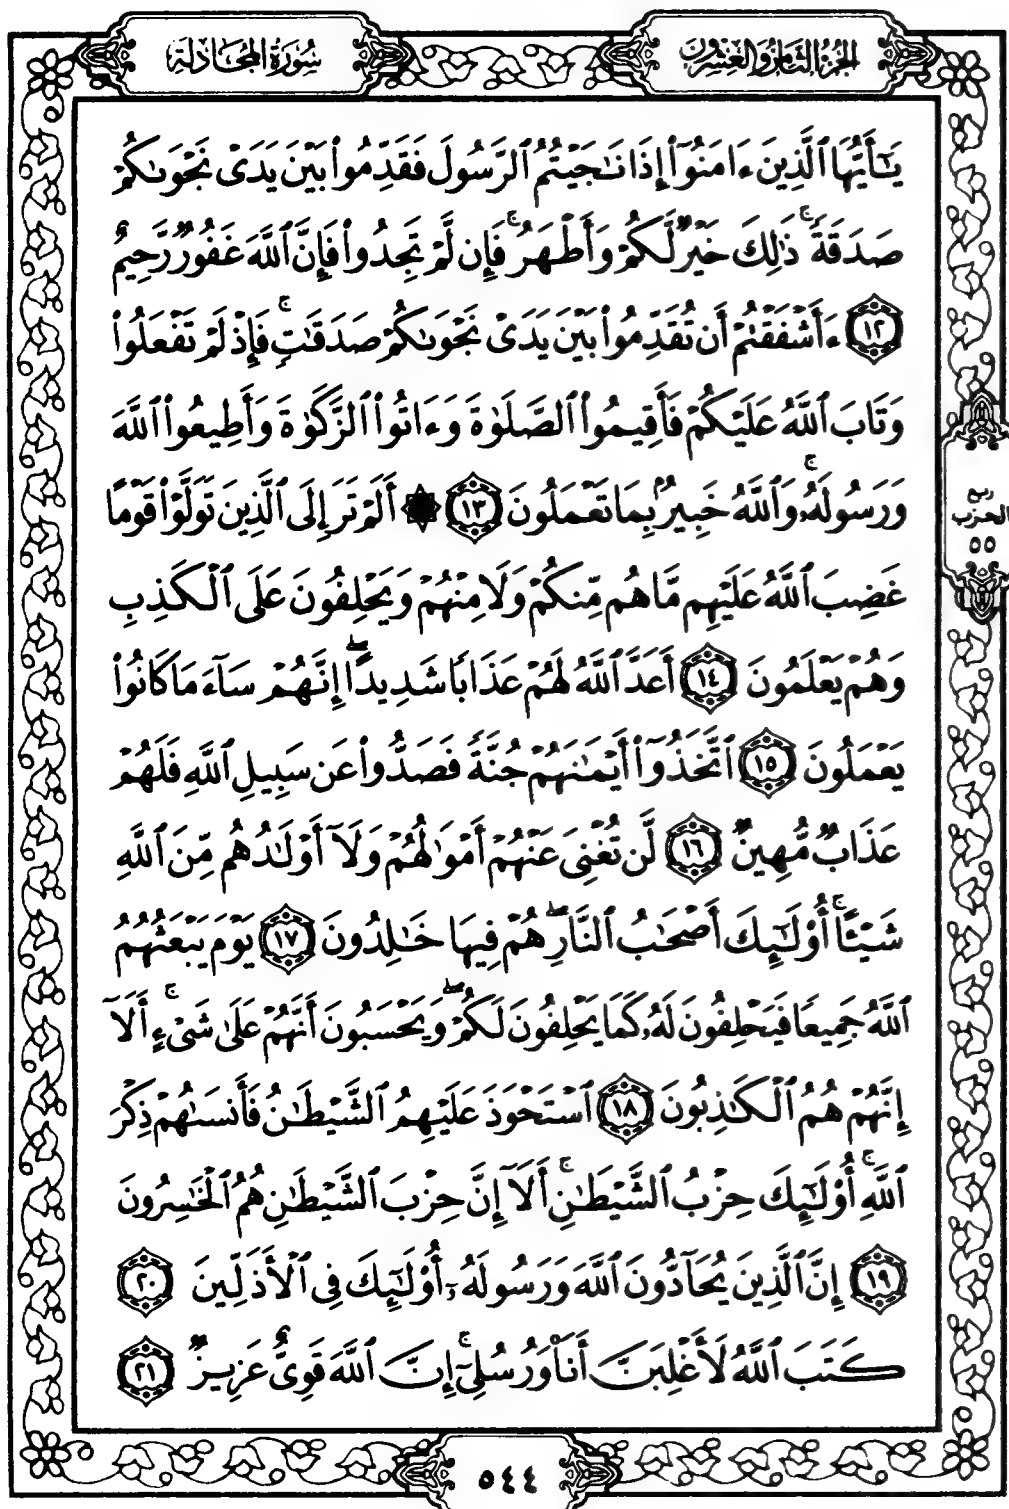 الجزء الثامن والعشرون
سورة المجادلة
يَٰٓأَيُّهَا ٱلَّذِينَ ءَامَنُوٓا۟ إِذَا نَٰجَيْتُمُ ٱلرَّسُولَ فَقَدِّمُوا۟ بَيْنَ يَدَىْ نَجْوَىٰكُمْ
صَدَقَةً ۚ ذَٰلِكَ خَيْرٌ لَّكُمْ وَأَطْهَرُ ۚ فَإِن لَّمْ تَجِدُوا۟ فَإِنَّ ٱللَّهَ غَفُورٌ رَّحِيمٌ
١٢ ءَأَشْفَقْتُمْ أَن تُقَدِّمُوا۟ بَيْنَ يَدَىْ نَجْوَىٰكُمْ صَدَقَٰتٍ ۚ فَإِذْ لَمْ تَفْعَلُوا۟
وَتَابَ ٱللَّهُ عَلَيْكُمْ فَأَقِيمُوا۟ ٱلصَّلَوٰةَ وَءَاتُوا۟ ٱلزَّكَوٰةَ وَأَطِيعُوا۟ ٱللَّهَ
وَرَسُولَهُۥ ۚ وَٱللَّهُ خَبِيرٌۢ بِمَا تَعْمَلُونَ ١٣ ۞ أَلَمْ تَرَ إِلَى ٱلَّذِينَ تَوَلَّوْا۟ قَوْمًا
غَضِبَ ٱللَّهُ عَلَيْهِم مَّا هُم مِّنكُمْ وَلَا مِنْهُمْ وَيَحْلِفُونَ عَلَى ٱلْكَذِبِ
وَهُمْ يَعْلَمُونَ ١٤ أَعَدَّ ٱللَّهُ لَهُمْ عَذَابًا شَدِيدًا ۖ إِنَّهُمْ سَآءَ مَا كَانُوا۟
يَعْمَلُونَ ١٥ ٱتَّخَذُوٓا۟ أَيْمَٰنَهُمْ جُنَّةً فَصَدُّوا۟ عَن سَبِيلِ ٱللَّهِ فَلَهُمْ
عَذَابٌ مُّهِينٌ ١٦ لَّن تُغْنِىَ عَنْهُمْ أَمْوَٰلُهُمْ وَلَآ أَوْلَٰدُهُم مِّنَ ٱللَّهِ
شَيْـًٔا ۚ أُو۟لَٰٓئِكَ أَصْحَٰبُ ٱلنَّارِ ۖ هُمْ فِيهَا خَٰلِدُونَ ١٧ يَوْمَ يَبْعَثُهُمُ
ٱللَّهُ جَمِيعًا فَيَحْلِفُونَ لَهُۥ كَمَا يَحْلِفُونَ لَكُمْ ۖ وَيَحْسَبُونَ أَنَّهُمْ عَلَىٰ شَىْءٍ ۚ أَلَآ
إِنَّهُمْ هُمُ ٱلْكَٰذِبُونَ ١٨ ٱسْتَحْوَذَ عَلَيْهِمُ ٱلشَّيْطَٰنُ فَأَنسَىٰهُمْ ذِكْرَ
ٱللَّهِ ۚ أُو۟لَٰٓئِكَ حِزْبُ ٱلشَّيْطَٰنِ ۚ أَلَآ إِنَّ حِزْبَ ٱلشَّيْطَٰنِ هُمُ ٱلْخَٰسِرُونَ
١٩ إِنَّ ٱلَّذِينَ يُحَآدُّونَ ٱللَّهَ وَرَسُولَهُۥٓ أُو۟لَٰٓئِكَ فِى ٱلْأَذَلِّينَ ٢٠
كَتَبَ ٱللَّهُ لَأَغْلِبَنَّ أَنَا۠ وَرُسُلِىٓ ۚ إِنَّ ٱللَّهَ قَوِىٌّ عَزِيزٌ ٢١
ربع
الحزب
٥٥
٥٤٤